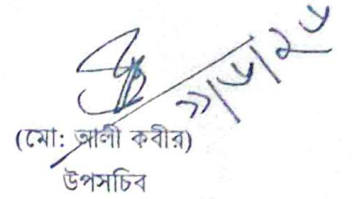 ১১/৬/২৬
(মো: আলী কবীর)
উপসচিব